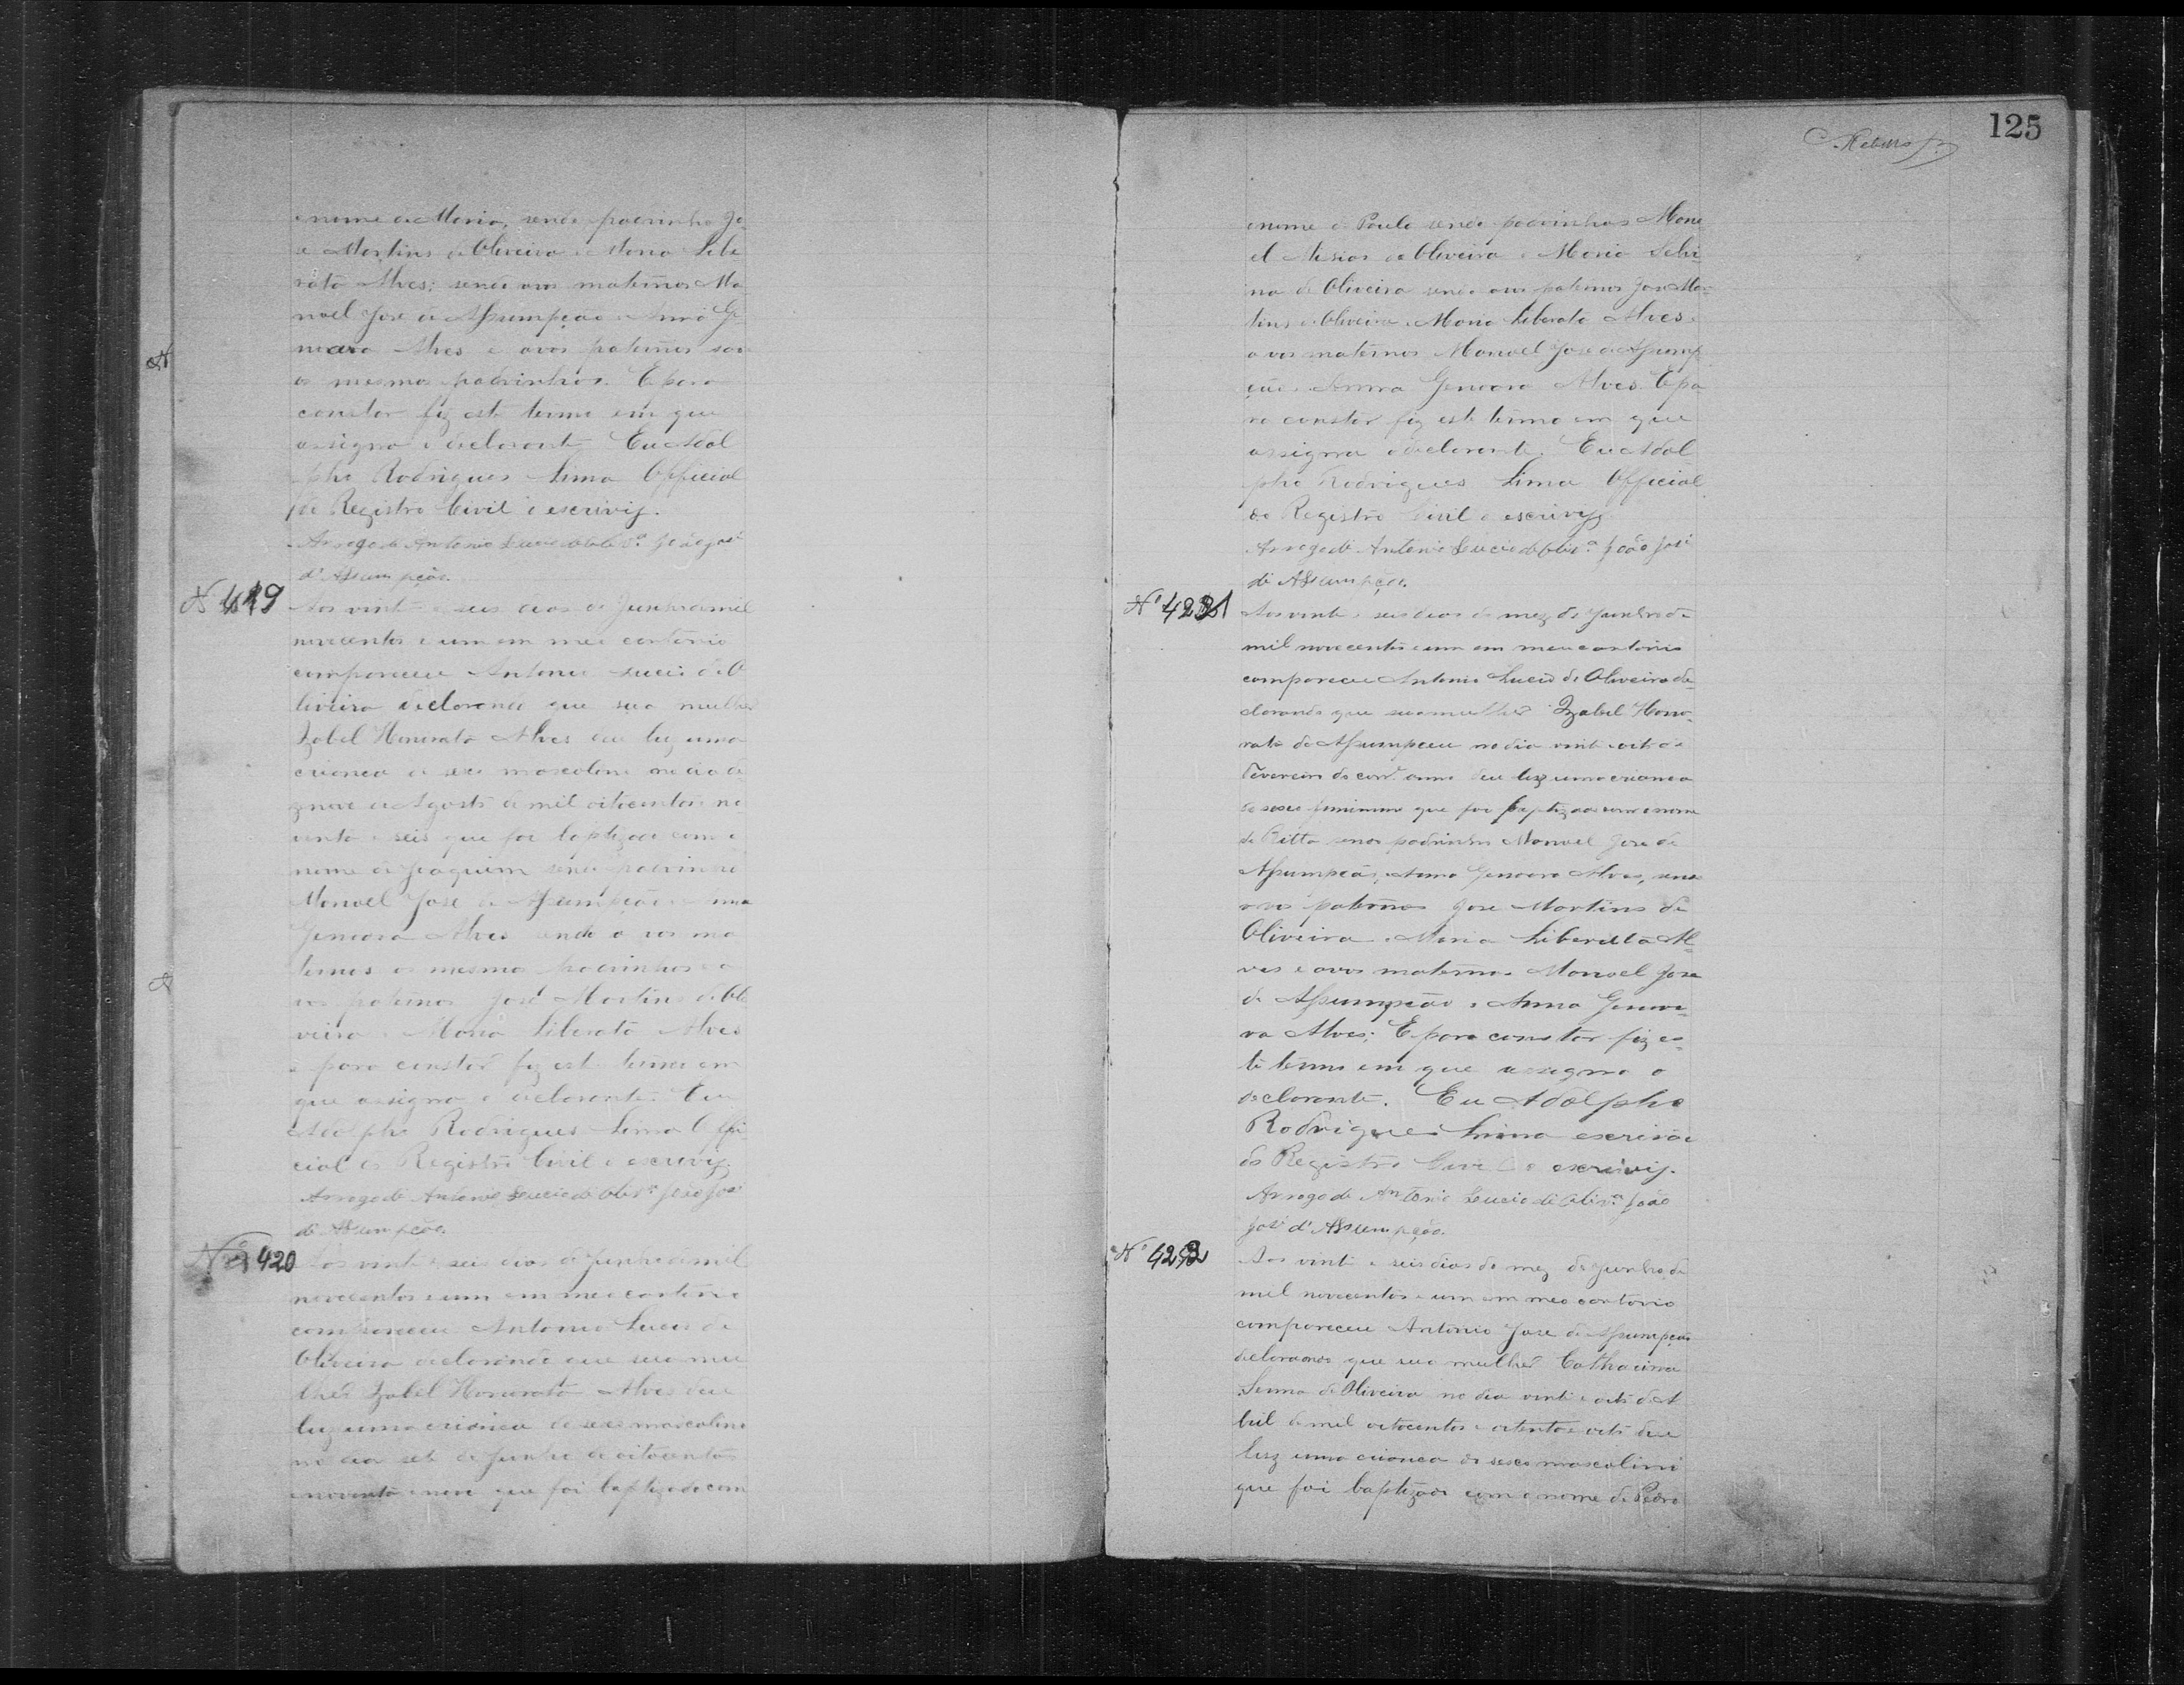 o nome de Maria, sendo padrinho Jo-
se Martins de Oliveira e Maria Libe
rata Alves; sendo avos maternos Ma-
noel Jose de Assumpção e Anna Ge-
noveva Alves e avos paternos são
os mesmos padrinhos. E para
constar fiz este termo em que
assigna o declarante. Eu Adol
pho Rodrigues Lima Official
do Registro Civil o escrivy.
Arrogo de Antonio Lucio de Oliv.ª João José
d'Assumpção.
Nº 419
Aos vinte e seis dias de Junho de mil
novecentos e um em meu cartorio
compareceu Antonio Lucio de O
liveira declarando que sua mulher
Izabel Honorata Alves deu luz uma
crianca de sexo mascolino no dia de
znove de Agosto de mil oitocentos no
venta e seis que foi baptizado com o
nome de Joaquim sendo padrinho
Manoel Jose de Assumpção e Anna
Genoveva Alves sendo a vos ma
ternos os mesmos padrinhos e a
vos paternos José Martins de Oli
veira e Maria Liberata Alves
e para constar fiz este termo em
que assigna o declarante. Eu
Adolpho Rodrigues Lima Offi
cial do Registro Civil o escrivy.
Arrogo de Antonio Lucio de Oliv.ª João José
di Assumpção.
Nº 420
Aos vinte e seis dias de Junho de mil
novecentos e um em meu cartorio
compareceu Antonio Lucio de
Oliveira declarando que sua mu
lher Izabel Honorata Alves deu
luz uma crianca de sexo mascolino
no dia sete de Junho de oitocentos
e noventa e nove que foi baptizado com
125
o nome de Paulo sendo padrinhos Mano
el de Oliveira e Maria
na de Oliveira sendo avos paternos Jose Mar-
tins de Oliveira e Maria Liberata Alves e
avos maternos Manoel Jose de Assump
ção e Anna Genoveva Alves. E pa
ra constar fiz este termo em que
assigna o declarante. Eu Adol
pho Rodrigues Lima Official
do Registro Civil o escrivy
Arrogo de Antonio Lucio de Oliv.ª João José
di Assumpção.
Nº 421
Aos vinte e seis dias do mez de Junho de
mil novecentos e um em meu cartorio
compareceu Antonio Lucio de Oliveira de-
clarando que sua mulher Izabel Hono-
rata de Assumpcau no dia vinte e oito de
Fevereiro do corr.e anno deu luz uma crianca
do sexo feminino que foi baptizada com o nome
de Ritta sendo padrinhos Manoel Jose de
Assumpção e Anna Genoveva Alves, sendo
avos paternos Jose Martins de
Oliveira e Maria Liberatta Al-
ves e avos maternos Manoel Jose
de Assumpção e Anna Genove-
va Alves; E para constar fiz es-
te termo em que assigna o
declarante. Eu Adolpho
Rodrigues Lima escrivão
do Registro Civil o escrivy.
Arrogo de Antonio Lucio di Oliv.ª João
José d'Assumpção.
Nº 422
Aos vinte e seis dias do mez de Junho de
mil novecentos e um em meo cartorio
compareceu Antonio Jose de Assumpção
declarando que sua mulher Catharina
Senna de Oliveira no dia vinte e oito de A
bril de mil oitocentos e oitenta e oito deu
luz uma crianca do sexo mascolino
que foi baptizado com o nome de Pedro